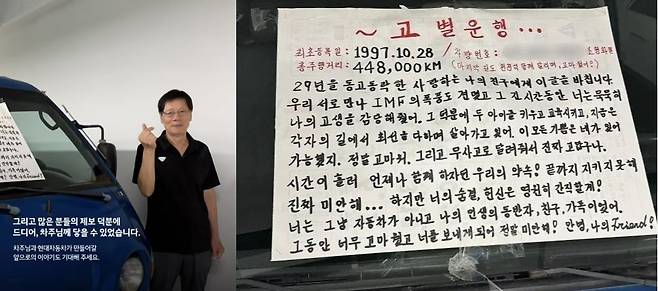 그리고 많은 분들의 제보 덕분에
드디어, 차주님께 닿을 수 있었습니다.
차주님과 현대자동차가 만들어갈
앞으로의 이야기도 기대해 주세요.
~ 고별운행...
최초등록일 : 1997.10.28 / 차량번호 :
총주행거리 : 448,000KM (마지막 길도 편하게 함께 달리며, 고마웠어요!)
29년을 동고동락한 사랑하는 나의 친구에게 이글을 바칩니다.
우리 서로 만나 IMF의 폭풍도 견뎠고 그 긴시간동안 너는 묵묵히
나의 고생을 감당해줬어. 그 덕분에 두 아이를 키우고 교육시키고, 지금은
각자의 길에서 최선을 다하며 살아가고 있어. 이 모든기쁨은 네가 있어
가능했지. 정말 고마워. 그리고 무사고로 달려줘서 진짜 고맙구나.
시간이 흘러 언제나 함께 하자던 우리의 약속! 끝까지 지키지 못해
진짜 미안해... 하지만 너의 숨결, 헌신은 영원히 간직할게!
너는 그냥 자동차가 아니고 나의 인생의 동반자, 친구, 가족이었어.
그동안 너무 고마웠고 너를 보내게되어 정말 미안해! 안녕, 나의 Friend!